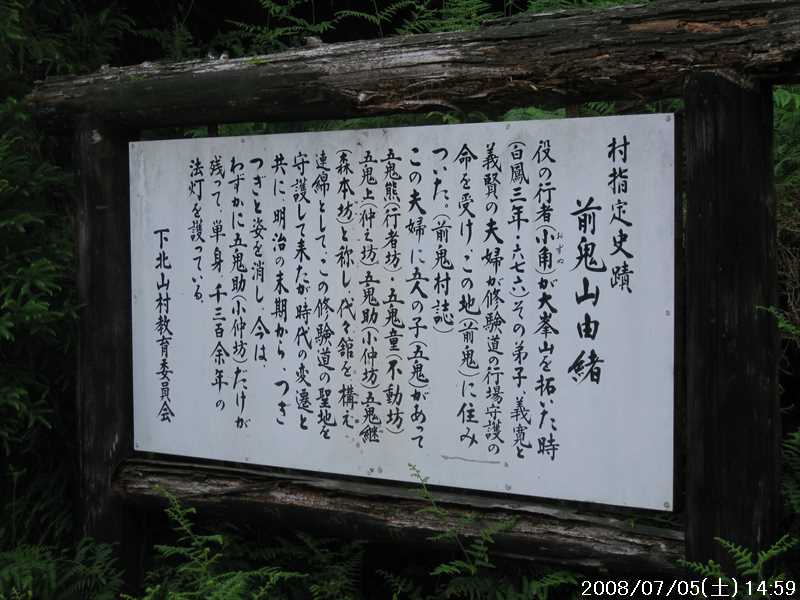 村指定史蹟
前鬼山由緒
役の行者(小角)が大峯山を拓いた時
おずぬ
(白鳳三年・六七六)その弟子・義寛と
義賢の夫婦が修験道の行場守護の
命を受け、この地(前鬼)に住み
ついた。(前鬼村誌)
この夫婦に五人の子(五鬼)があって
五鬼熊(行者坊)・五鬼童(不動坊)
五鬼上(仲之坊)五鬼助(小仲坊)五鬼継
(森本坊)と称し、代々舘を構え
連綿として、この修験道の聖地を
守護して来たが、時代の変遷と
共に、明治の末期から、つぎ
つぎと姿を消し、今は、
わずかに五鬼助(小仲坊)だけが
残って、単身、千三百余年の
法灯を護っている。
下北山村教育委員会
2008/07/05(土) 14:59